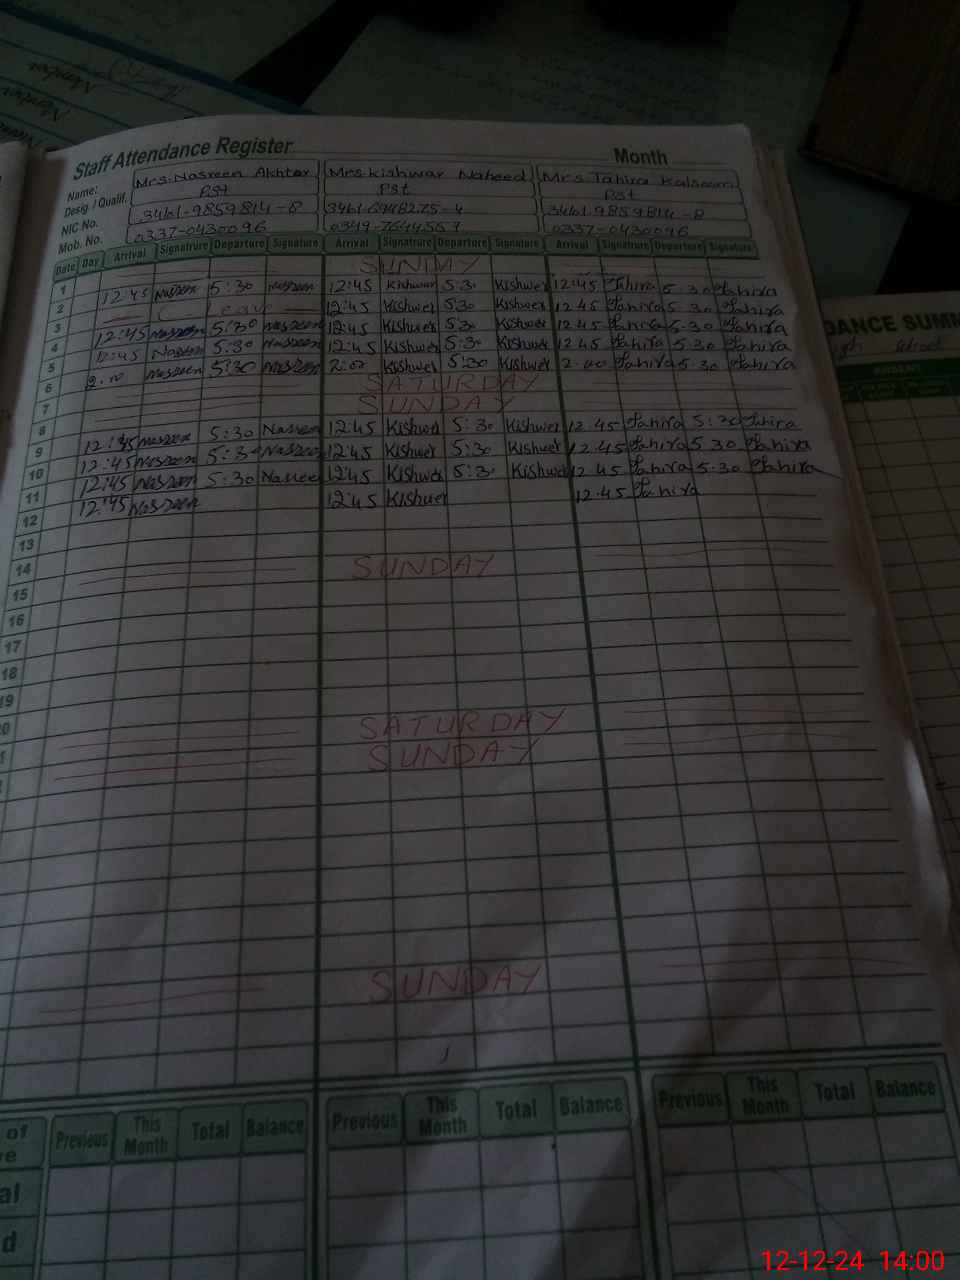 Staff Attendance Register
Month
Name: Mrs. Nasreen Akhtar Mrs. Kishwar Naheed Mrs Tahira Kalsoom
Desig. / Qualif. Pst Pst Pst
NIC No. 3461-9859814-8 3461-6948275-4 3461.9859814-8
Mob. No. 0337-0430096 0349-7644569 0337-0430096
Date Day Arrival Signatrure Departure Signature Arrival Signatrure Departure Signature Arrival Signatrure Departure Signature
1 SUNDAY
2 12:45 Nasreen 5:30 Nasreen 12:45 Kishwer 5:30 Kishwer 12:45 Tahira 5.30 Tahira
3 Leave 12:45 Kishwer 5:30 Kishwer 12 45 Tahira 5.30 Tahira
4 12:45 Nasreen 5:30 Nasreen 12:45 Kishwer 5:30 Kishwer 12.45 Tahira 5.30 Tahira
5 12:45 Nasreen 5:30 Nasreen 12:45 Kishwer 5:30 Kishwer 12 45 Tahira 5.30 Tahira
6 Nasreen 5:30 Nasreen Kishwer 5:30 Kishwer Tahira 5.30 Tahira
7 SATURDAY
8 SUNDAY
9 12:45 Nasreen 5:30 Nasreen 12:45 Kishwer 5:30 Kishwer 12.45 Tahira 5:30 Tahira
10 12:45 Nasreen 5:30 Nasreen 12:45 Kishwer 5:30 Kishwer 12.45 Tahira 5.30 Tahira
11 12:45 Nasreen 5:30 Nasreen 12:45 Kishwer 5:30 Kishwer 12 45 Tahira 5.30 Tahira
12 12:45 Nasreen 12:45 Kishwer 12.45 Tahira
13
14
15 SUNDAY
16
17
18
19
20
SATURDAY
SUNDAY
SUNDAY
of Previous This Month Total Balance Previous This Month Total Balance Previous This Month Total Balance
DANCE SUMM
12-12-24 14:00